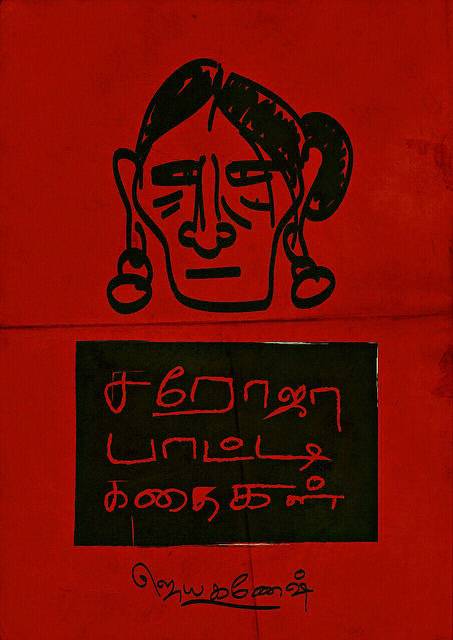 சரோஜா
பாட்டி
கதைகள்
ஜெயகணேஷ்